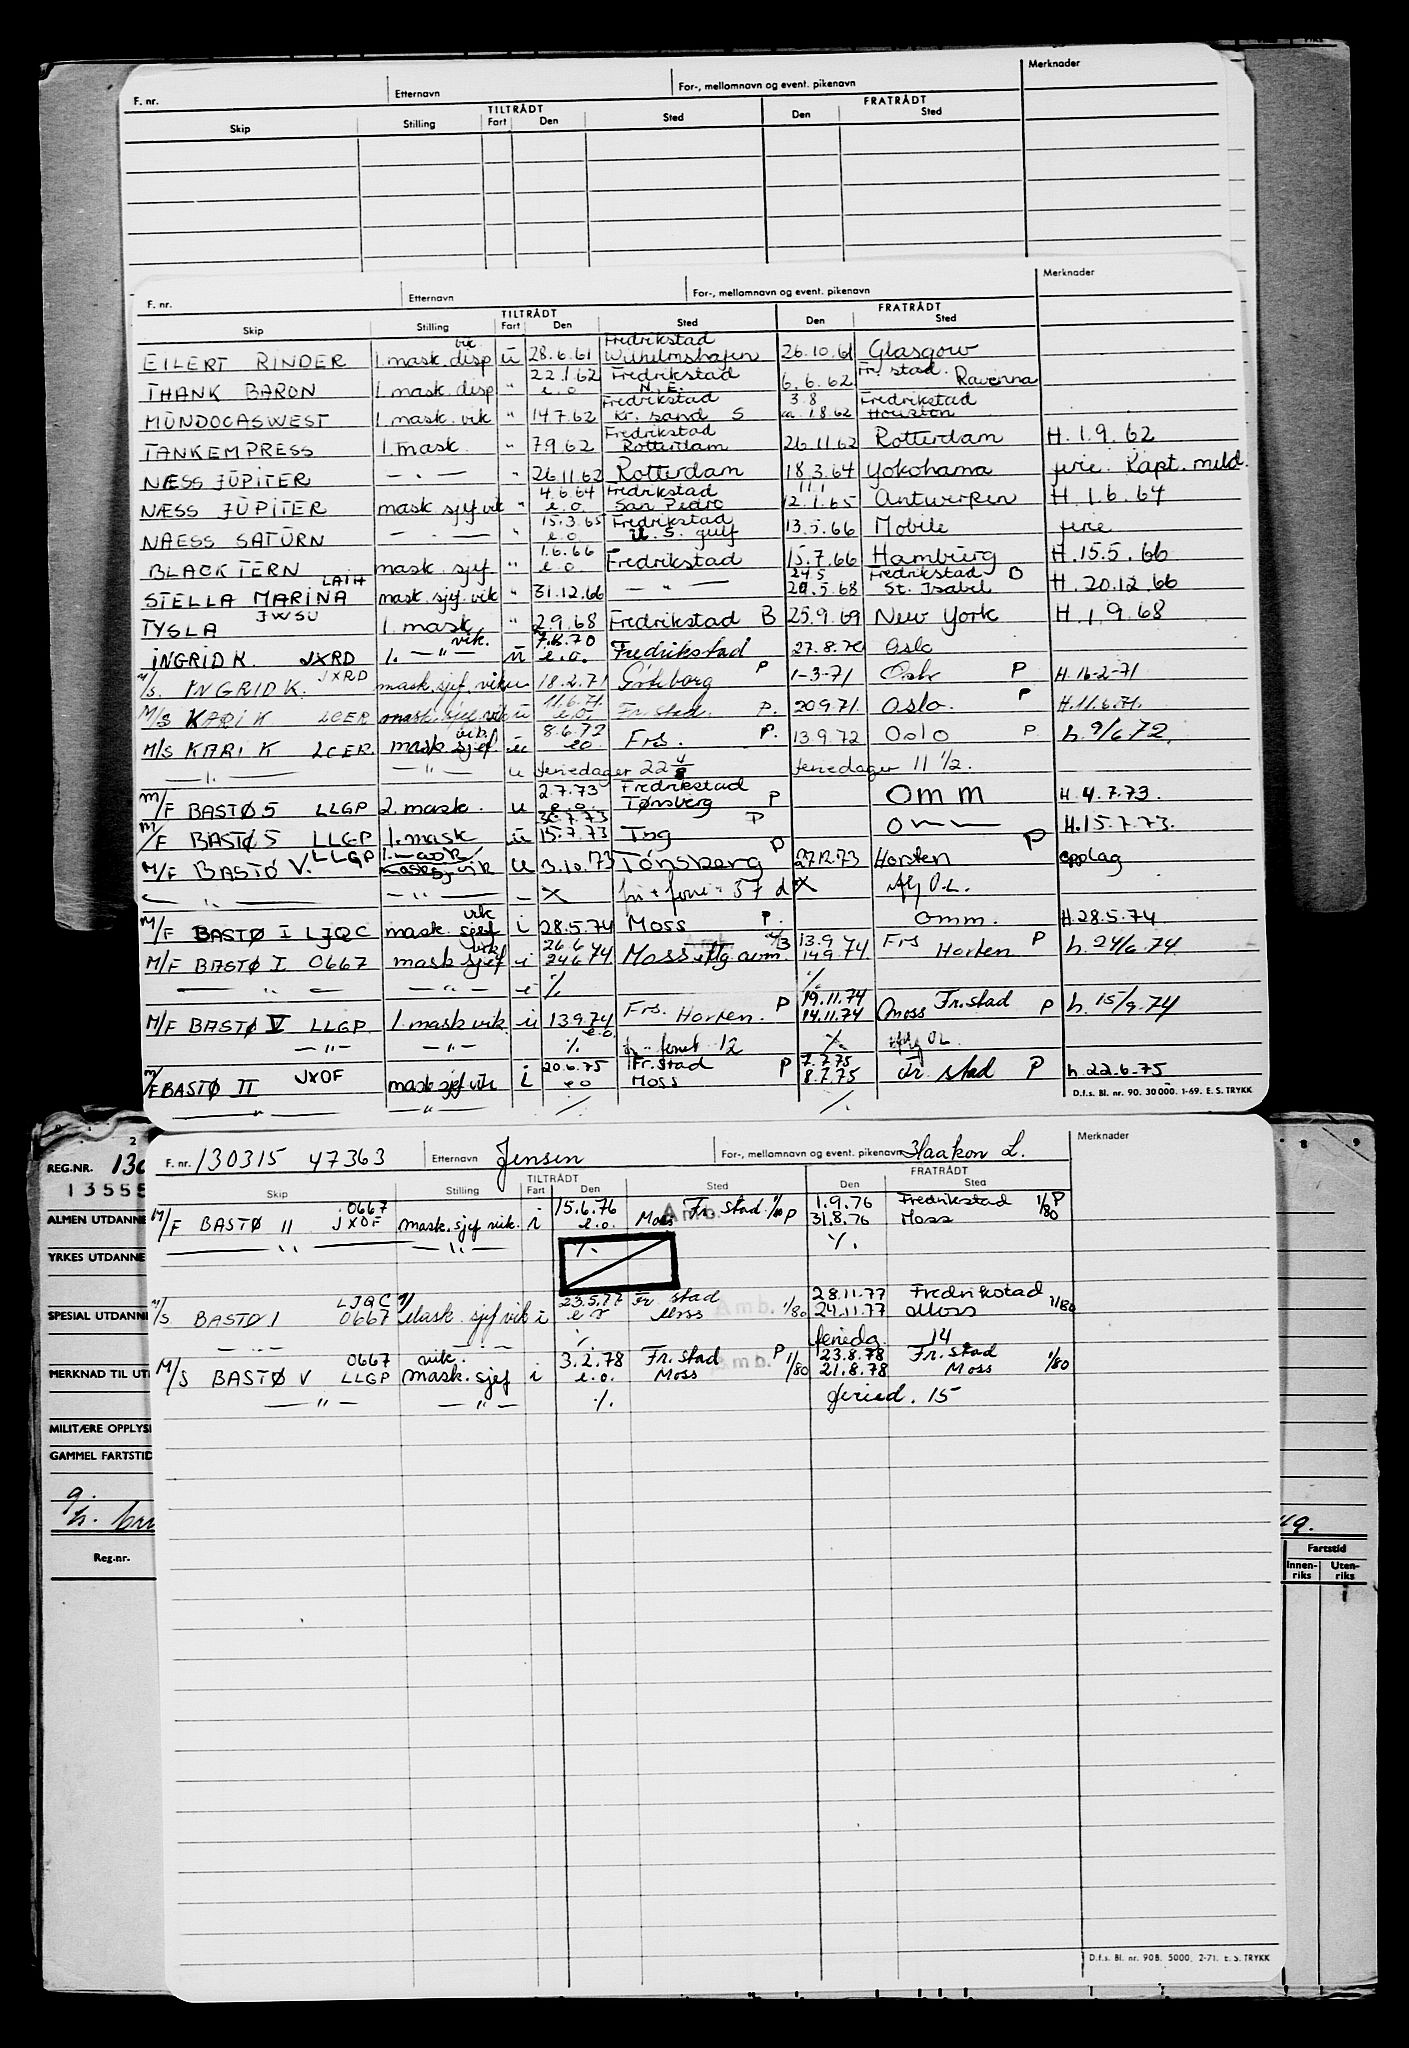 Merknader
F. nr. Etternavn For-, mellomnavn og event. pikenavn
TILTRÅDT FRATRÅDT
Skip Stilling Fart Den Sted Den Sted
Merknader
F. nr. Etternavn For-, mellomnavn og event. pikenavn
TILTRÅDT FRATRÅDT
Skip Stilling Fart Den Sted Den Sted
vik. Fredrikstad
EILERT RINDER 1. mask. disp u 28.6.61 Wilhelmshafen 26.10.61 Glasgow
22.1.62 Fredrikstad Fr. stad.
THANK BARON 1. mask. disp " e.o N.E. 6.6.62 Ravenna
Fredrikstad 3.8 Fredrikstad
MUNDOGASWEST 1. mask. vik " 14.7.62 Kr. sand S ca. 1.8.62 Houston
Fredrikstad
TANKEMPRESS 1. mask. " 7.9.62 Rotterdam 26.11.62 Rotterdam H. 1.9.62
NÆSS JUPITER — " — " 26.11.62 Rotterdam 18.3.64 Yokohama ferie. Kapt. meld.
4.6.64 Fredrikstad 11.1
NÆSS JUPITER mask. sjef vik " e.o. San Pedro 12.1.65 Antwerpen H. 1.6.64
15.3.65 Fredrikstad
NAESS SATURN — " — " e.o U.S. gulf 13.5.66 Mobile ferie
1.6.66
BLACK TERN mask. sjef " e.o. Fredrikstad 15.7.66 Hamburg H. 15.5.66
LATH 24 5 Fredrikstad B
STELLA MARINA mask. sjef. vik " 31.12.66 — " — 29.5.68 St. Isabel H. 20.12.66
JWSU
TYSLA 1. mask " 2.9.68 Fredrikstad B 25.9.69 New York H. 1.9.68
vik. 7.8.70
INGRID K. JXRD 1. — " — u e.o. Fredrikstad 27.8.70 Oslo
M/S INGRID K. JXRD mask. sjef. vik u 18.2.71 Göteborg P 1-3-71 Oslo P H. 16-2-71
11.6.71
M/S KARI K LCER mask. sjef vik u e.o. Fr. stad. P. 20.9.71. Oslo. P H. 11.6.71.
vik. 8.6.72
M/S KARI K LCER mask. sjef u e.o. Frs. P. 13.9.72 Oslo P h. 9/6 72.
— " — — " — u feriedager 22 4/8 feriedager 11 1/2.
2.7.73 Fredrikstad
M/F BASTØ 5 LLGP 2. mask. u e.o. Tønsberg P omm H. 4.7.73.
30.7.73 P
M/F BASTØ 5 LLGP 1. mask u 15.7.73 Tbg H. 15.7.73.
M/F BASTØ V. LLGP 1. mask vik u 3.10.73 Tønsberg P 27.12.73 Horten P opplag
— " — — " — — X fri + ferie = 57 d X Afg O.L.
vik
M/F BASTØ I LJQC mask. sjef i 28.5.74 Moss P. omm. H. 28.5.74
26 6 vik 13.9 Frs P
M/F BASTØ I 0667 mask sjef i 24.6 74 Moss 14.9 74 Horten h. 24/6.74.
— " — — " — i %. %.
19.11.74 Fr. stad
M/F BASTØ V LLGP 1. mask vik. u 13.9.74 Frs. Horten. P 14.11.74 Moss P h. 15/9.74
e.o.
— " — — " — %. 12 %. O L.
20.6.75 Fr. stad 7.7.75
M/F BASTØ II JXOF mask sjef vik i e o Moss P 8.7.75 Fr. stad P h. 22.6-75
— " — — " — %. %.
D.f.s. Bl. nr. 90. 30 000. 1-69. E. S. TRYKK
Merknader
F. nr. 130315 47363 Etternavn Jensen For-, mellomnavn og event. pikenavn Haakon L.
TILTRÅDT FRATRÅDT
Skip Stilling Fart Den Sted Den Sted
0667 15.6.76 Fr. stad 1/80 P 1.9.76 Fredrikstad 1/80 P
M/F BASTØ II JXOF mask. sjef vik. i e.o. Moss Amb. 31.8.76 Moss
— " — — " — %. %.
LJQC 23.5.77 Fr. stad 28.11.77 Fredrikstad
M/S BASTØ I 0667 Mask. sjef vik i e o Moss Amb. 1/80 24.11.77 Moss 1/80
— " — — " — %. feriedg. 14
0667 vik. 3.2.78 Fr. stad P 23.8.78 Fr. stad
M/S BASTØ V LLGP mask. sjef i e.o. Moss Amb. 1/80 21.8.78 Moss 1/80
— " — — " — %. feried. 15
D.f.s. Bl. nr. 90B. 5000. 2-71. E. S. TRYKK
REG.NR.
ALMEN UTDANNE
YRKES UTDANNE
SPESIAL UTDANNE
MERKNAD TIL UT
MILITÆRE OPPLYS
GAMMEL FARTSTID
Reg.nr.
8 9
Fartstid
Innen-riks Uten-riks